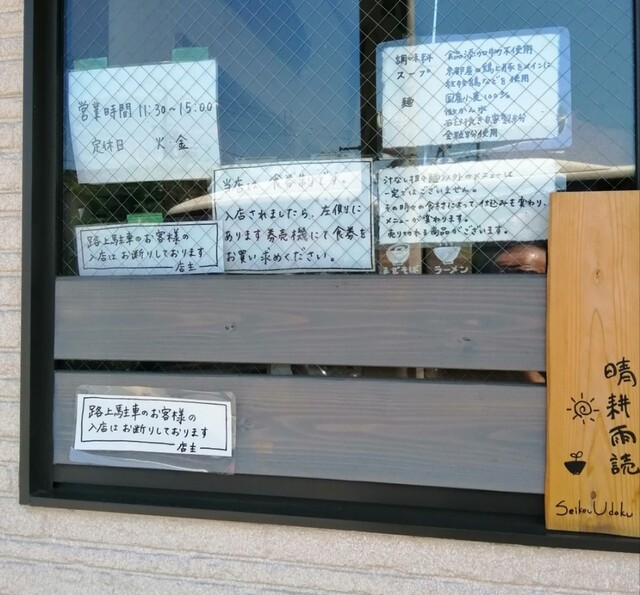 営業時間 11:30~15:00
定休日 火 金
調味料 食品添加物不使用
スープ 京都産の鶏と豚をメインに
使用
麺 国産小麦100%
全粒粉使用
当店は、食券制です。
入店されましたら、左側に
あります券売機にて食券を
お買い求めください。
汁なし担々麺以外のメニューは
一定ではございません。
その時々の食材によって仕込みを変わり、
メニューが変わります。
売り切れる商品がございます。
まぜそば
ラーメン
路上駐車のお客様の
入店はお断りしております
店主
路上駐車のお客様の
入店はお断りしております
店主
晴耕雨読
Seikou Udoku